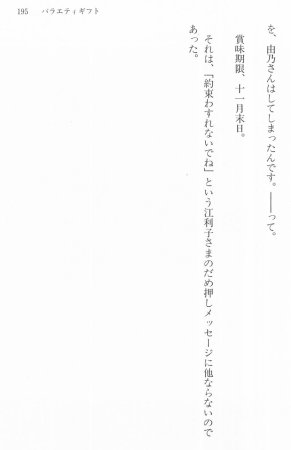 195　バラエティギフト
を、由乃さんはしてしまったんです。――って。
賞味期限、十一月末日。
それは、「約束わすれないでね」という江利子さまのだめ押しメッセージに他ならないので
あった。